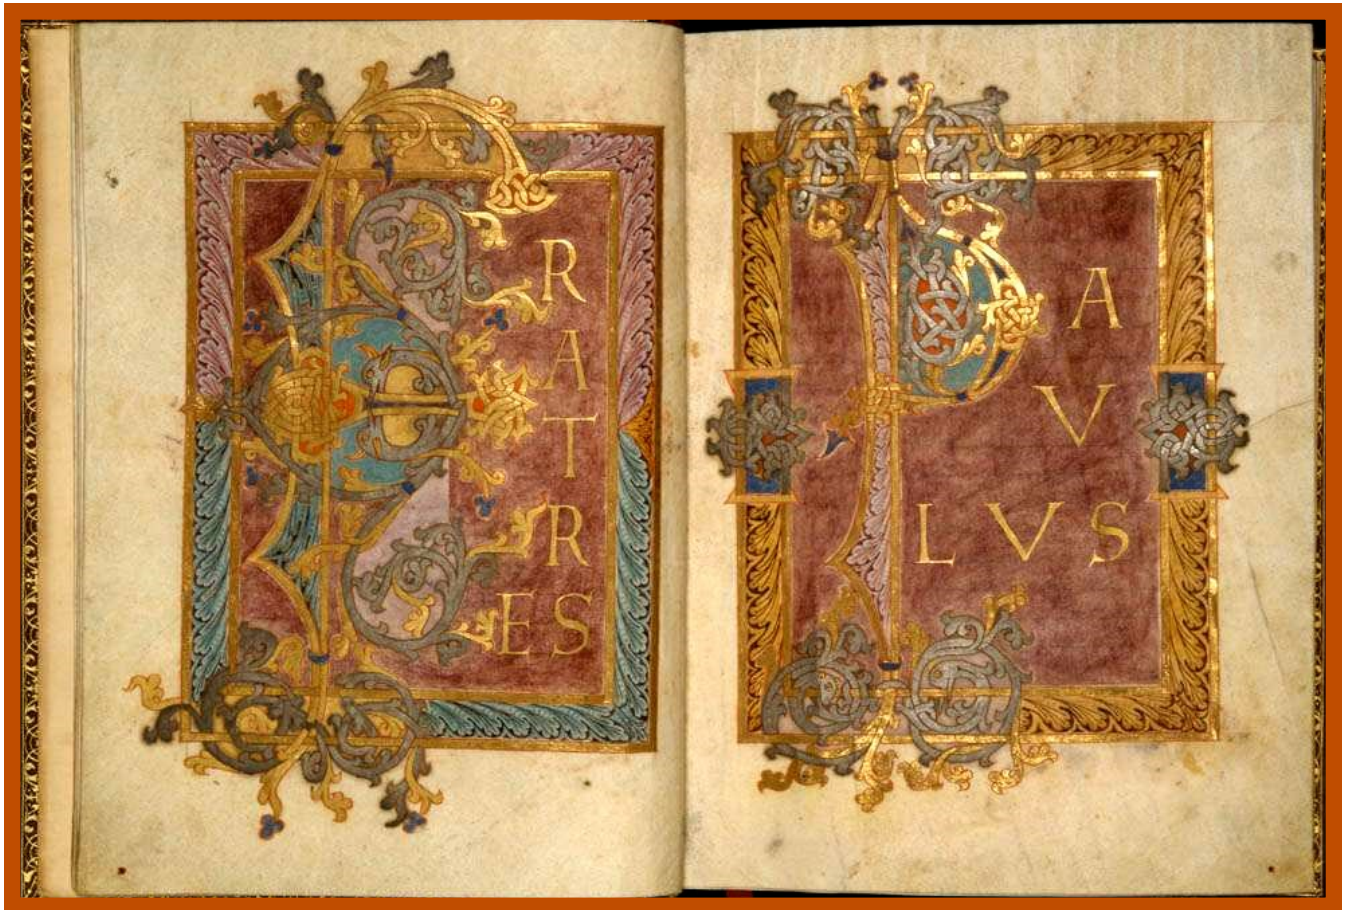 FR
A
T
R
ES
PA
V
LVS